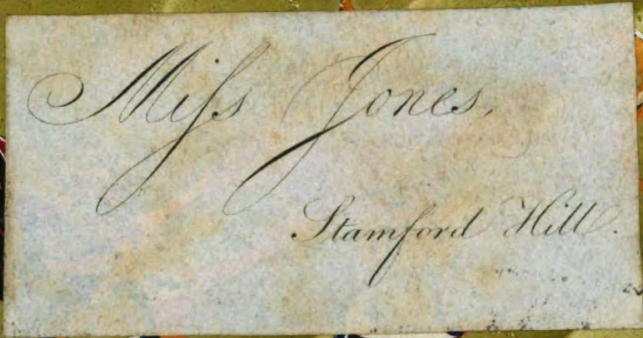 Miſs Jones,
Stamford Hill.